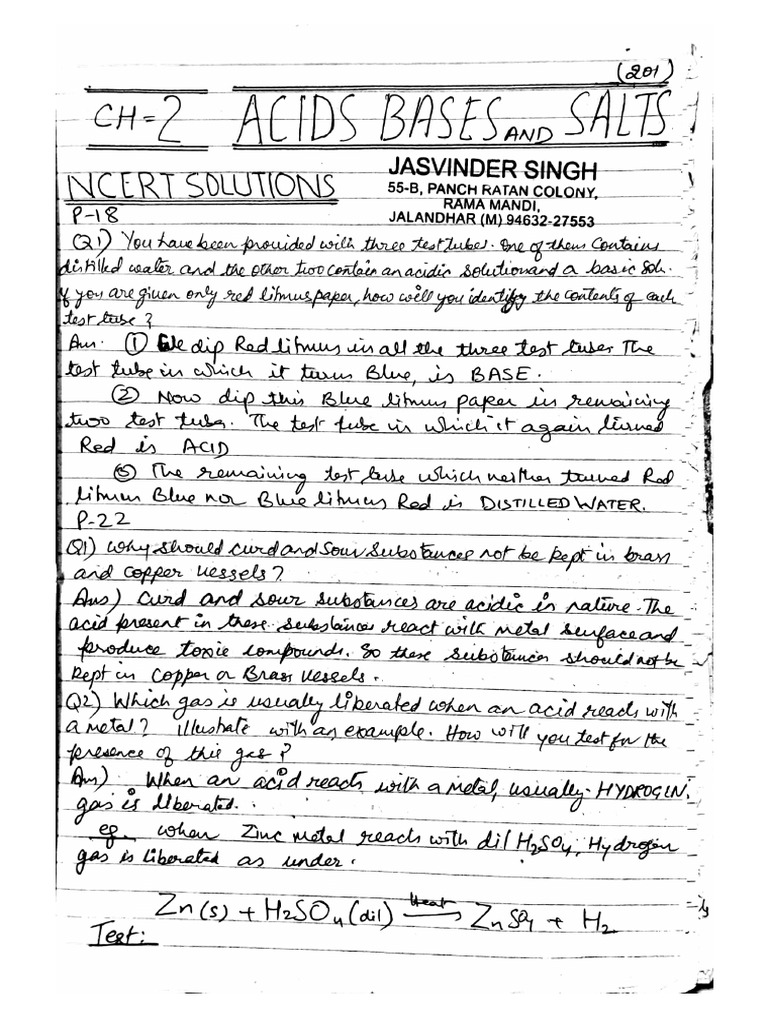 (201)
CH=2 ACIDS BASES AND SALTS
JASVINDER SINGH
55-B, PANCH RATAN COLONY,
RAMA MANDI,
JALANDHAR (M) 94632-27553
NCERT SOLUTIONS
P-18
Q1) You have been provided with three test tubes. One of them contains
distilled water and the other two contain an acidic solution and a basic soln.
If you are given only red litmus paper, how will you identify the contents of each
test tube?
Ans. ① We dip Red litmus in all the three test tubes The
test tube in which it turns Blue, is BASE.
② Now dip this Blue litmus paper in remaining
two test tubes. The test tube in which it again turned
Red is ACID
③ The remaining test tube which neither turned Red
litmus Blue nor Blue litmus Red is DISTILLED WATER.
P-22
Q1) Why should curd and sour substances not be kept in brass
and copper vessels?
Ans) Curd and sour substances are acidic in nature. The
acid present in these substances react with metal surface and
produce toxic compounds. So these substances should not be
kept in Copper or Brass vessels.
Q2) Which gas is usually liberated when an acid reacts with
a metal? Illustrate with an example. How will you test for the
presence of this gas?
Ans) When an acid reacts with a metal, usually HYDROGIN.
gas is liberated.
eg. when Zinc metal reacts with dil H2SO4, Hydrogen
gas is liberated as under.
Zn(s) + H2SO4 (dil) Heat → ZnSO4 + H2
Test: